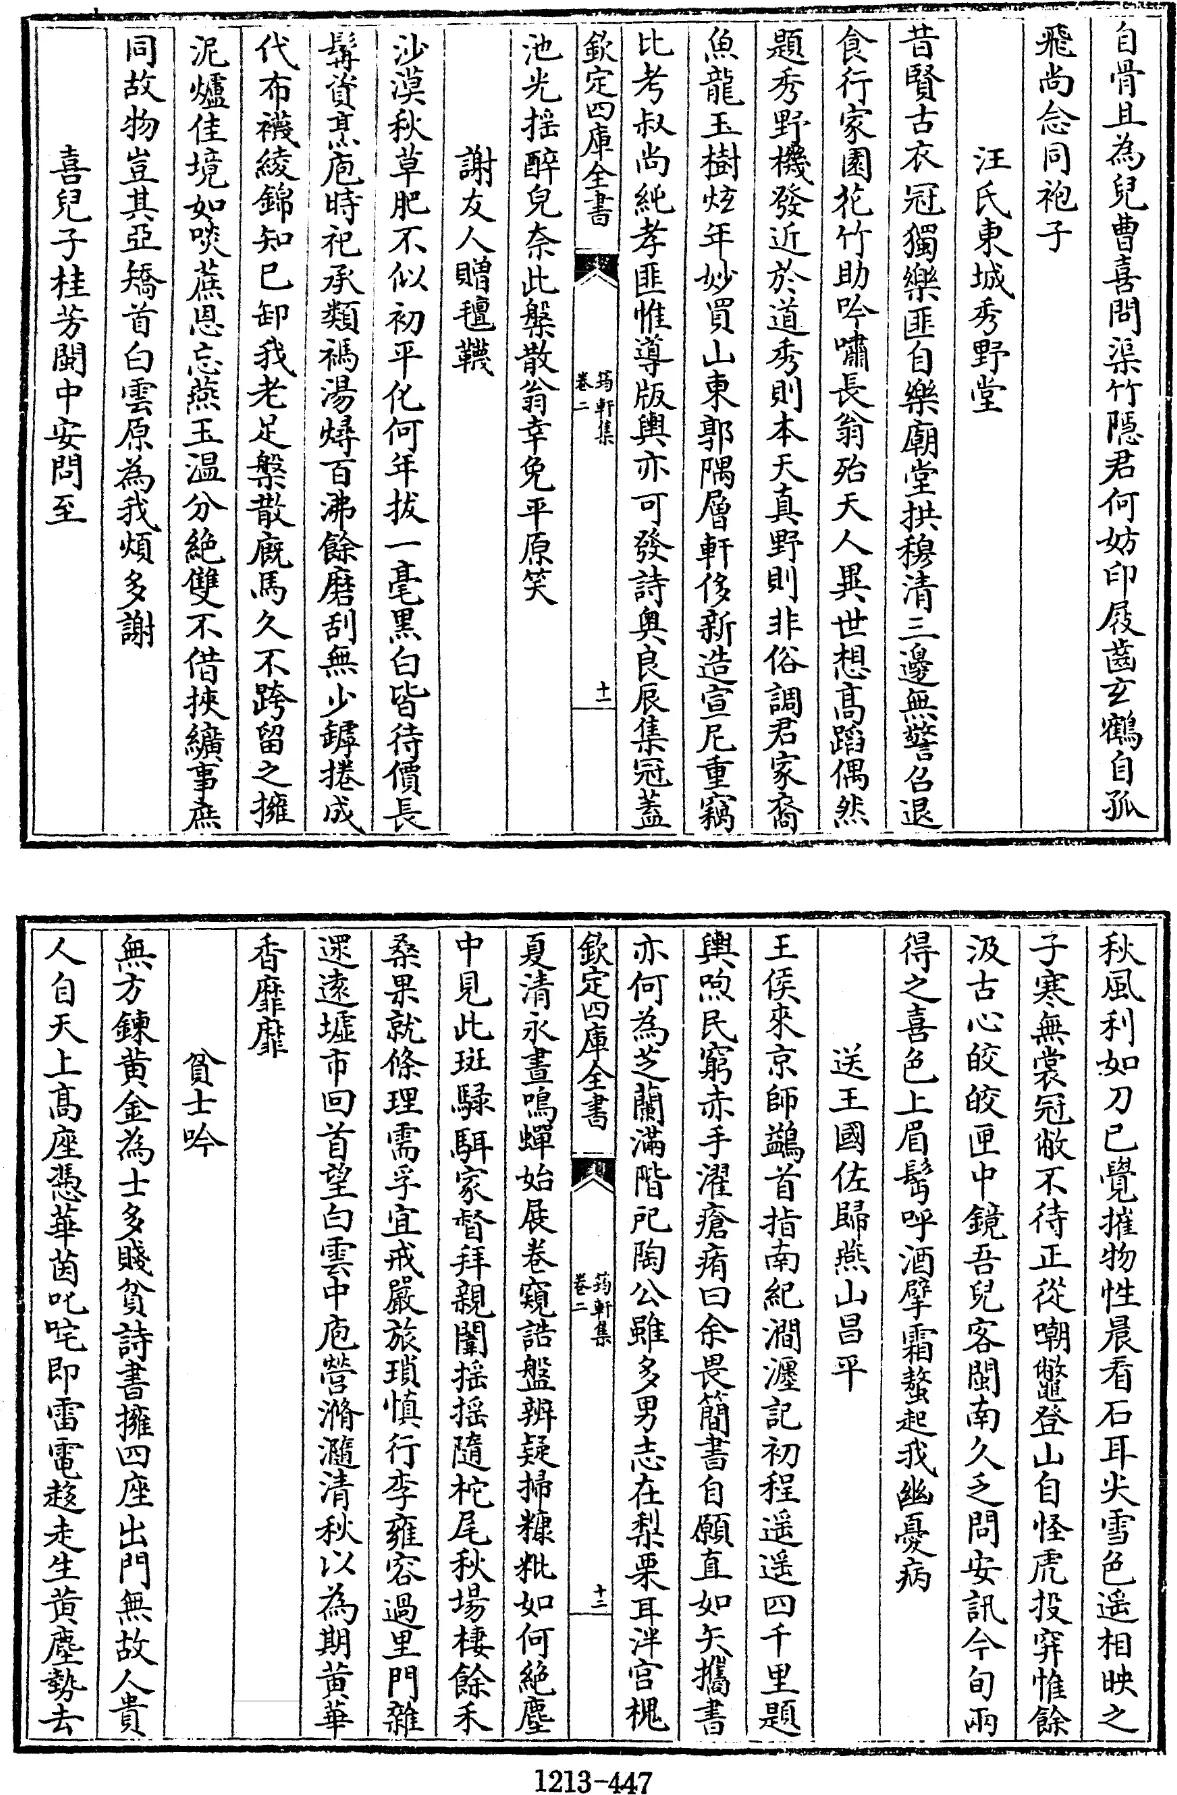 自骨且為兒曹喜問渠竹隱君何妨印屐齒玄鶴自孤
飛尚念同袍子
汪氏東城秀野堂
昔賢古衣冠獨樂匪自樂廟堂拱穆清三邊無警召退
食行家園花竹助吟嘯長翁殆天人異世想高蹈偶然
題秀野機發近於道秀則本天真野則非俗調君家裔
魚龍玉樹炫年妙買山東郭隅層軒侈新造宣尼重竊
比考叔尚純孝匪惟導版輿亦可發詩奧良辰集冠蓋
欽定四庫全書
筠軒集
卷二
十一
池光搖醉皃奈此槃散翁幸免平原笑
謝友人贈氊韈
沙漠秋草肥不似初平化何年拔一毫黑白皆待價長
髯資烹庖時祀承類禡湯燖百沸餘磨刮無少罅捲成
代布襪綾錦知已卸我老足槃散廐馬久不跨留之擁
泥爐佳境如啖蔗恩忘燕玉温分絶雙不借挾纊事庶
同故物豈其亞矯首白雲原為我煩多謝
喜兒子桂芳閩中安問至
秋風利如刀已覺摧物性晨看石耳尖雪色遥相映之
子寒無裳冠敝不待正從嘲鼈登山自怪虎投穽惟餘
汲古心皎皎匣中鏡吾兒客閩南久乏問安訊今旬兩
得之喜色上眉髩呼酒擘霜螯起我幽憂病
送王國佐歸燕山昌平
王侯來京師鷁首指南紀澗瀍記初程遥遥四千里題
輿喣民窮赤手濯瘡痏曰余畏簡書自願直如矢攜書
亦何為芝蘭滿階戺陶公雖多男志在梨栗耳泮宫槐
欽定四庫全書
筠軒集
卷二
十二
夏清永晝鳴蟬始展卷窺誥盤辨疑掃糠粃如何絶塵
中見此斑騄駬家督拜親闈摇摇隨柁尾秋場棲餘禾
桑果就條理需孚宜戒嚴旅瑣慎行李雍容過里門雜
遝逺墟市回首望白雲中庖營滫瀡清秋以為期黄華
香靡靡
貧士吟
無方鍊黄金為士多賤貧詩書擁四座出門無故人貴
人自天上高座憑華茵叱咤即雷電趍走生黄塵勢去
1213-447